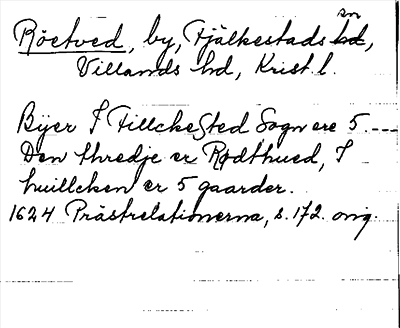 Röetved, by, Fjälkestads sn,
Villands hd, Krist. l.
Byer I FillckeSted Sogn ere 5.---
Den thredje er Rødthued, I
huillcken er 5 gaarder.
1624 Prästrelationerna, s. 172. orig.